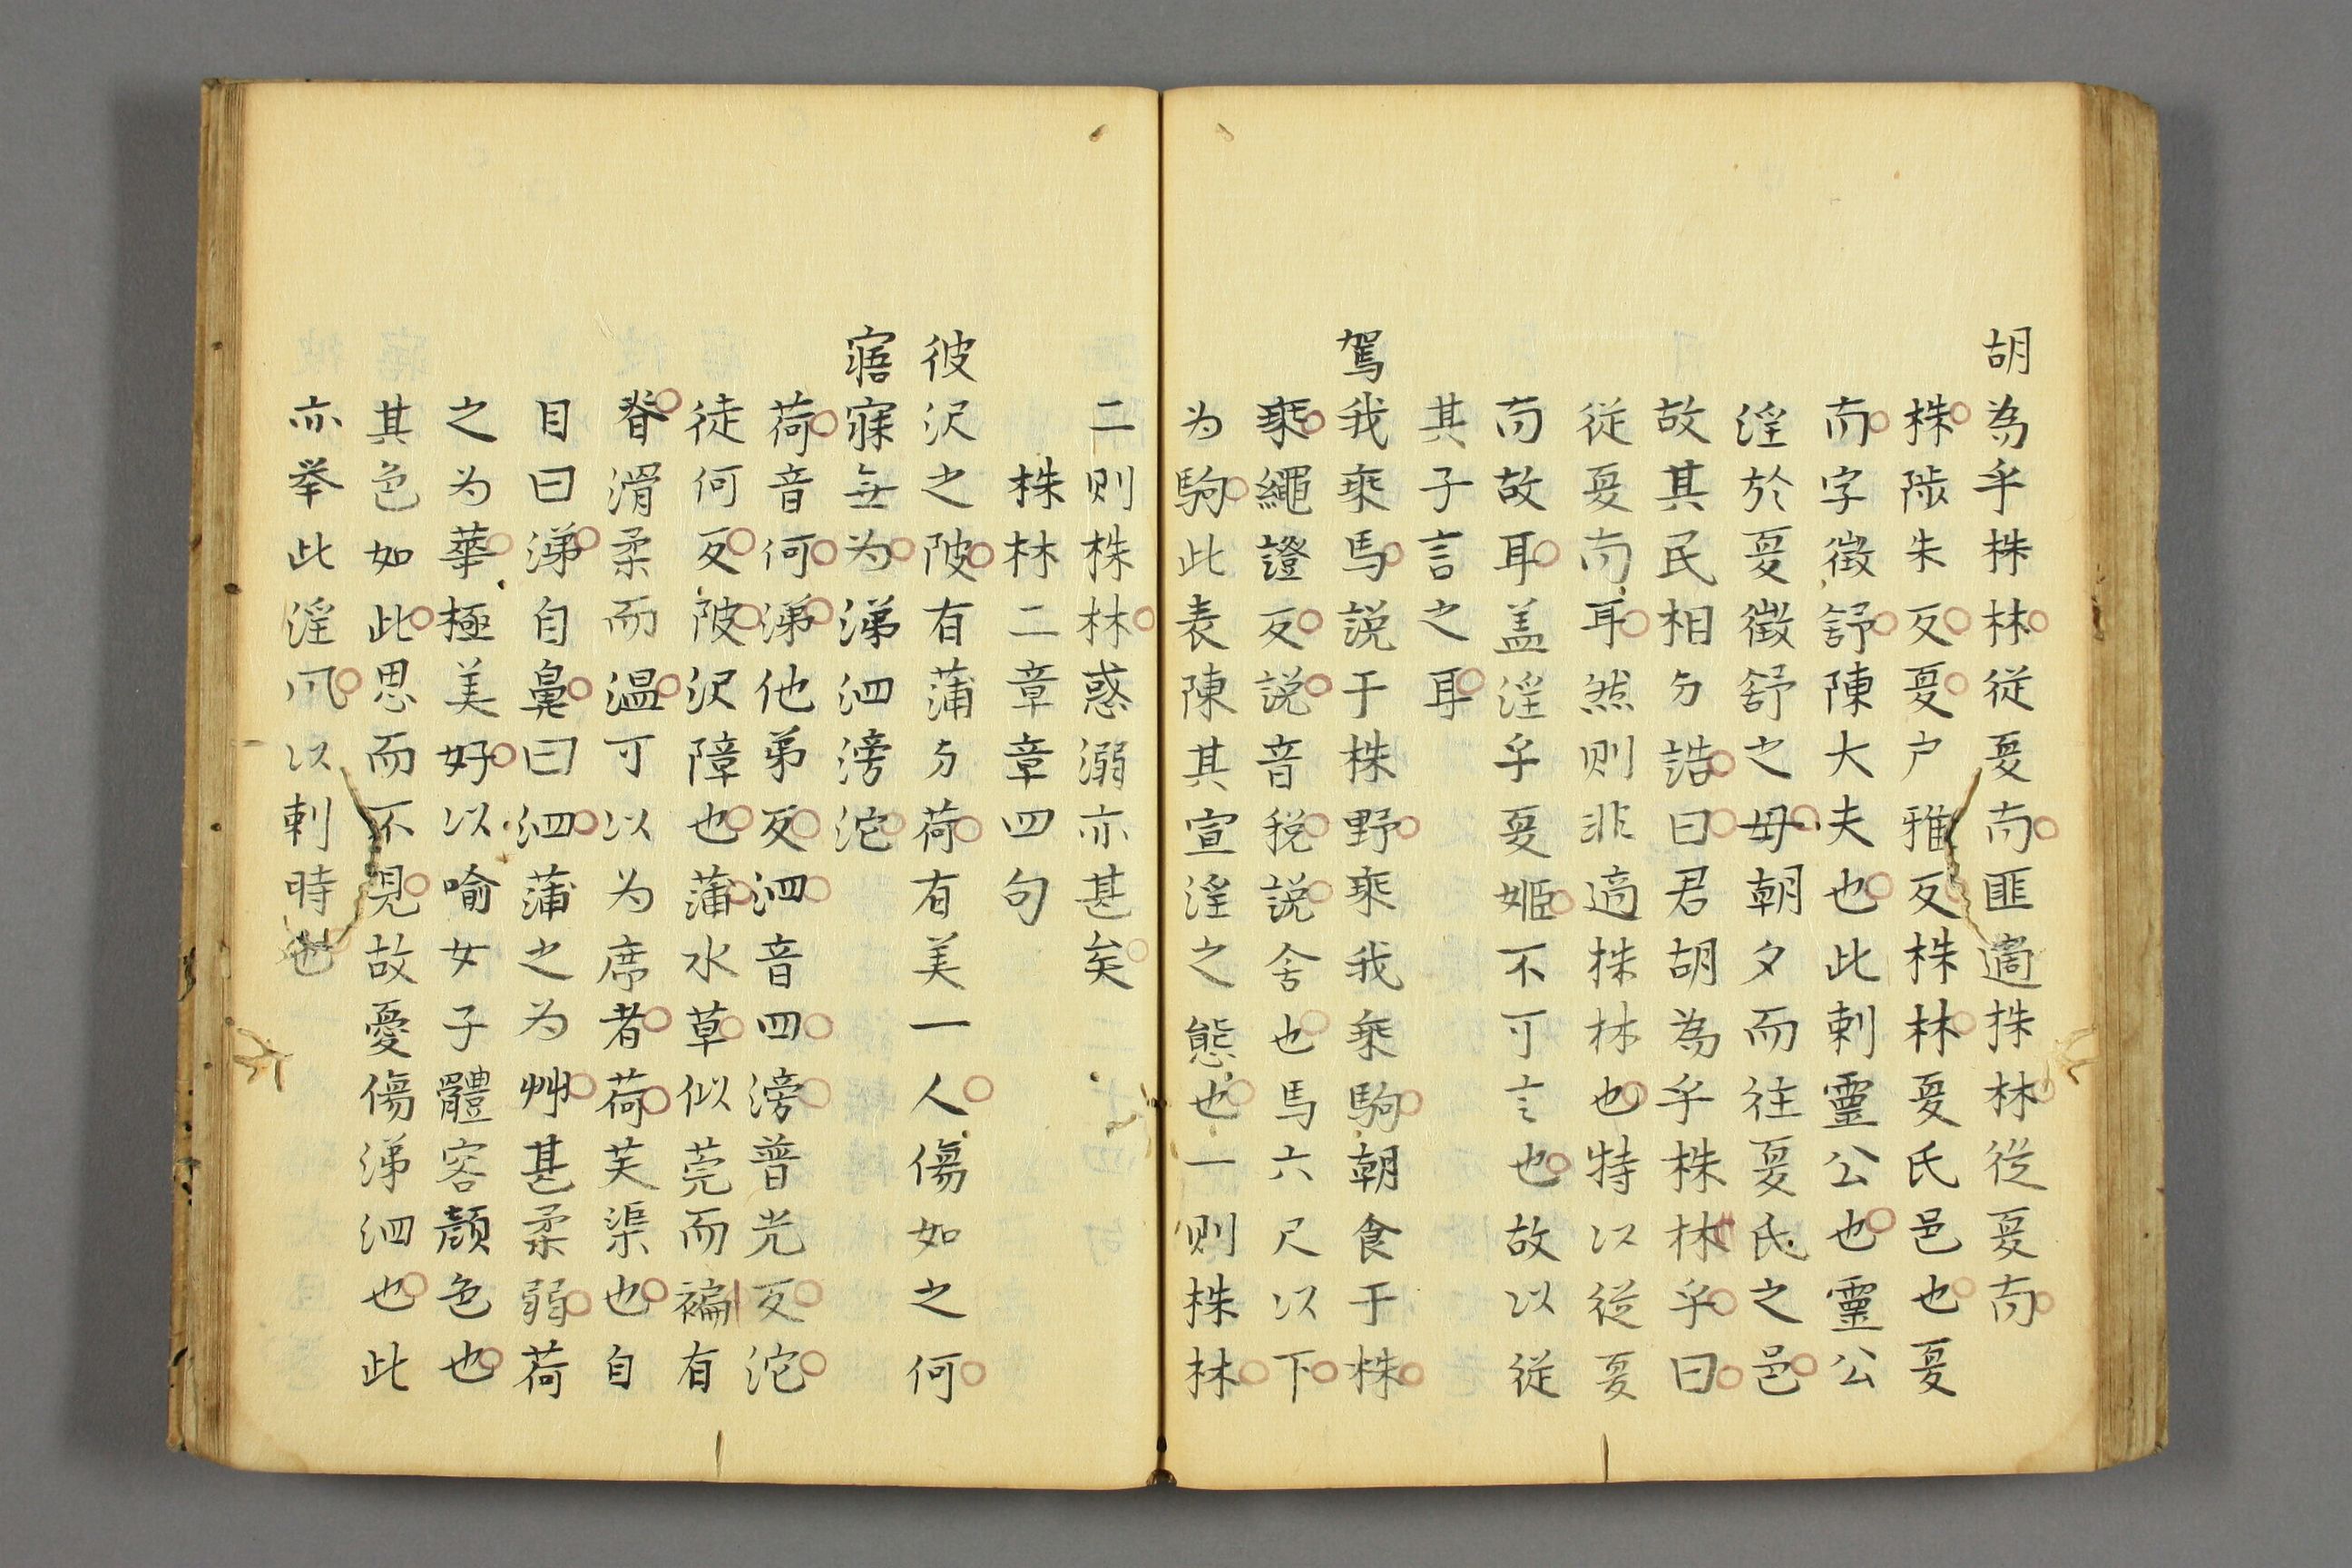 胡為乎株林從夏南匪適株林從夏南
株陟朱反夏户雅反株林夏氏邑也夏
南字徴舒陳大夫也此刺靈公也靈公
淫於夏徴舒之母朝夕而往夏氏之邑
故其民相与語曰君胡為乎株林乎曰
從夏南耳然则非適株林也特以從夏
南故耳盖淫乎夏姬不可言也故以從
其子言之耳
駕我乘馬説于株野乘我乘駒朝食于株
乘繩證反説音税説舍也馬六尺以下
为駒此表陳其宣淫之態也一则株林
二则株林惑溺亦甚矣
株林二章章四句
彼沢之陂有蒲与荷有美一人傷如之何
寤寐無为涕泗滂沱
荷音何涕他弟反泗音四滂普光反沱
徒何反陂沢障也蒲水草似莞而褊有
脊滑柔而温可以为席者荷芙渠也自
目曰涕自鼻曰泗蒲之为艸甚柔弱荷
之为華極美好以喻女子體容顔色也
其色如此思而不見故憂傷涕泗也此
亦挙此淫風以刺時也